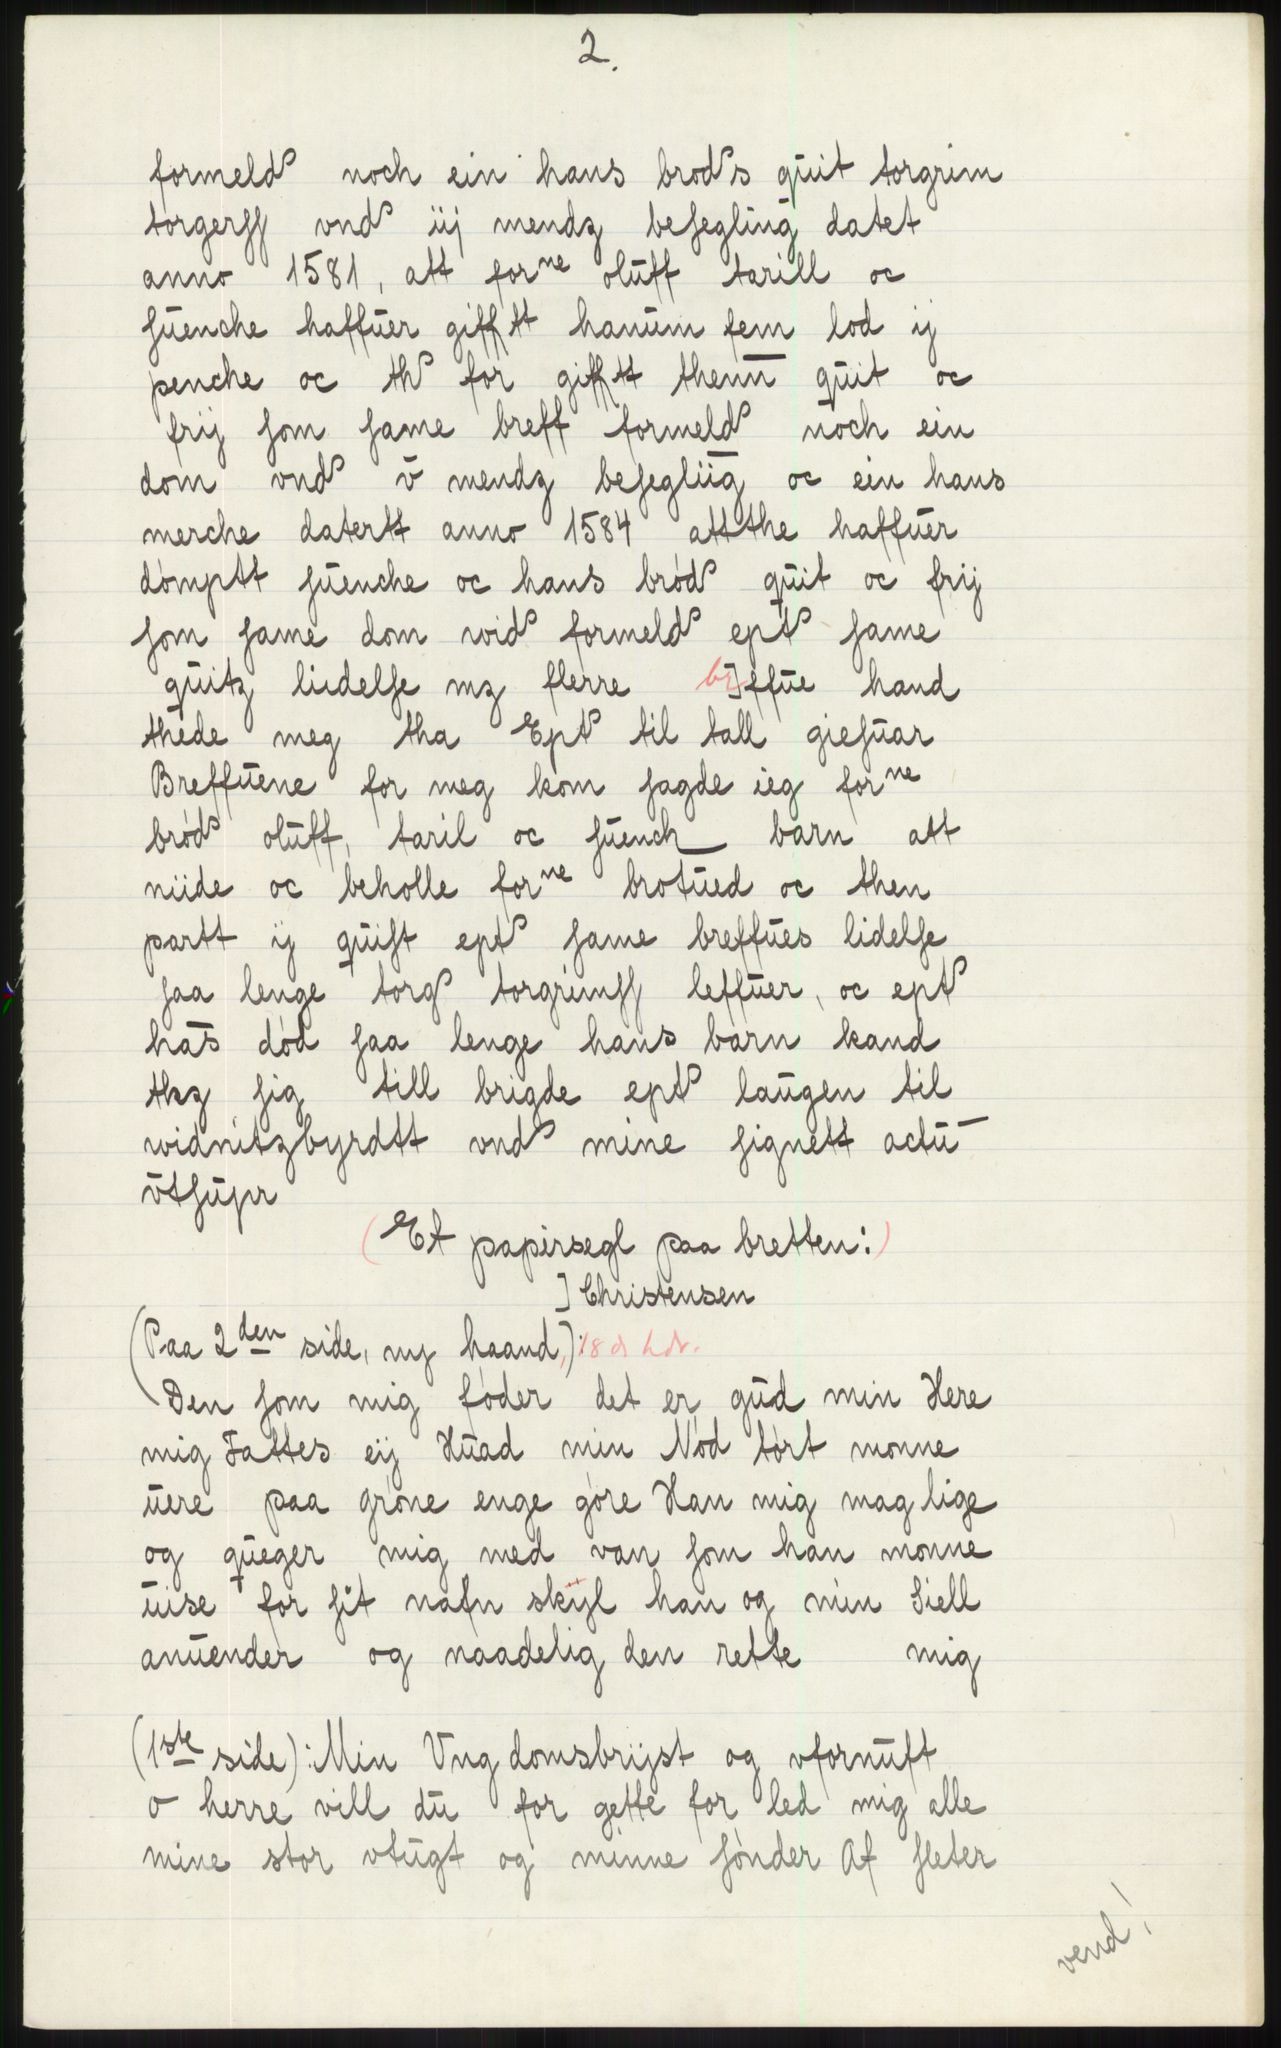 2.
formeld noch ein hans brods quit torgrim
torgerss vnd iij mendz besegling datet
anno 1581, att forne oluff tarill oc
suenche haffuer gifftt hanum fem lod ij
penche oc th for gifftt thenn quit oc
frij som same breff formeld noch ein
dom vnd v mendz besegliig oc ein hans
merche datertt anno 1584 att the haffuer
dømptt suenche oc hans brød quit oc frij
som same dom vid formeld ept same
quitz liudelse mz flerre breffue hand
thede meg tha Ept til tall giesuar
Breffuene for meg kom sagde ieg forne
brød oluff, taril oc suench barn att
niide oc beholle forne brotued oc then
partt ij quist ept same breffues lidelse
saa lenge torg torgrimss leffuer, oc ept
has død saa lenge hans barn kand
thz sig till brigde ept laugen til
widnitzbyrdtt vnd mine signett actu
vtsupr
(Et papirsegl paa bretten:)
] Christensen
(Paa 2den side, ny haand,): 18 d hdr.
Den som mig føder det er gud min Here
mig Fattes eij Huad min Nød tørt monne
uere paa grøne enge gøre Han mig mag lige
og queger mig med van som han monne
uise for sit nafn skÿl han og min Siell
anuender og naadelig den rette mig
(1ste side): Min Vng domsbrijst og vfornuft
o herre vill du for gette for led mig alle
mine stor vtugt og minne sønder Af sleter
vend!